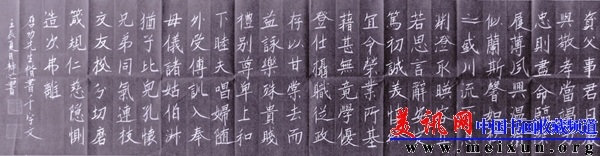 資父事君曰
與敬孝當
忠則盡命臨
履薄夙興溫
似蘭斯馨如
之盛川流不
淵澄取映容
若思言辭安
篤初誠美慎
宜令榮業所基
藉甚無竟學優
登仕攝職從政
存以甘棠去而
益詠樂殊貴賤
禮別尊卑上和
下睦夫唱婦隨
外受傅訓入奉
母儀諸姑伯叔
猶子比兒孔懷
兄弟同氣連枝
交友投分切磨
箴規仁慈隱惻
造次弗離
先生楷書千字文
美讯网 中国书画收藏频道